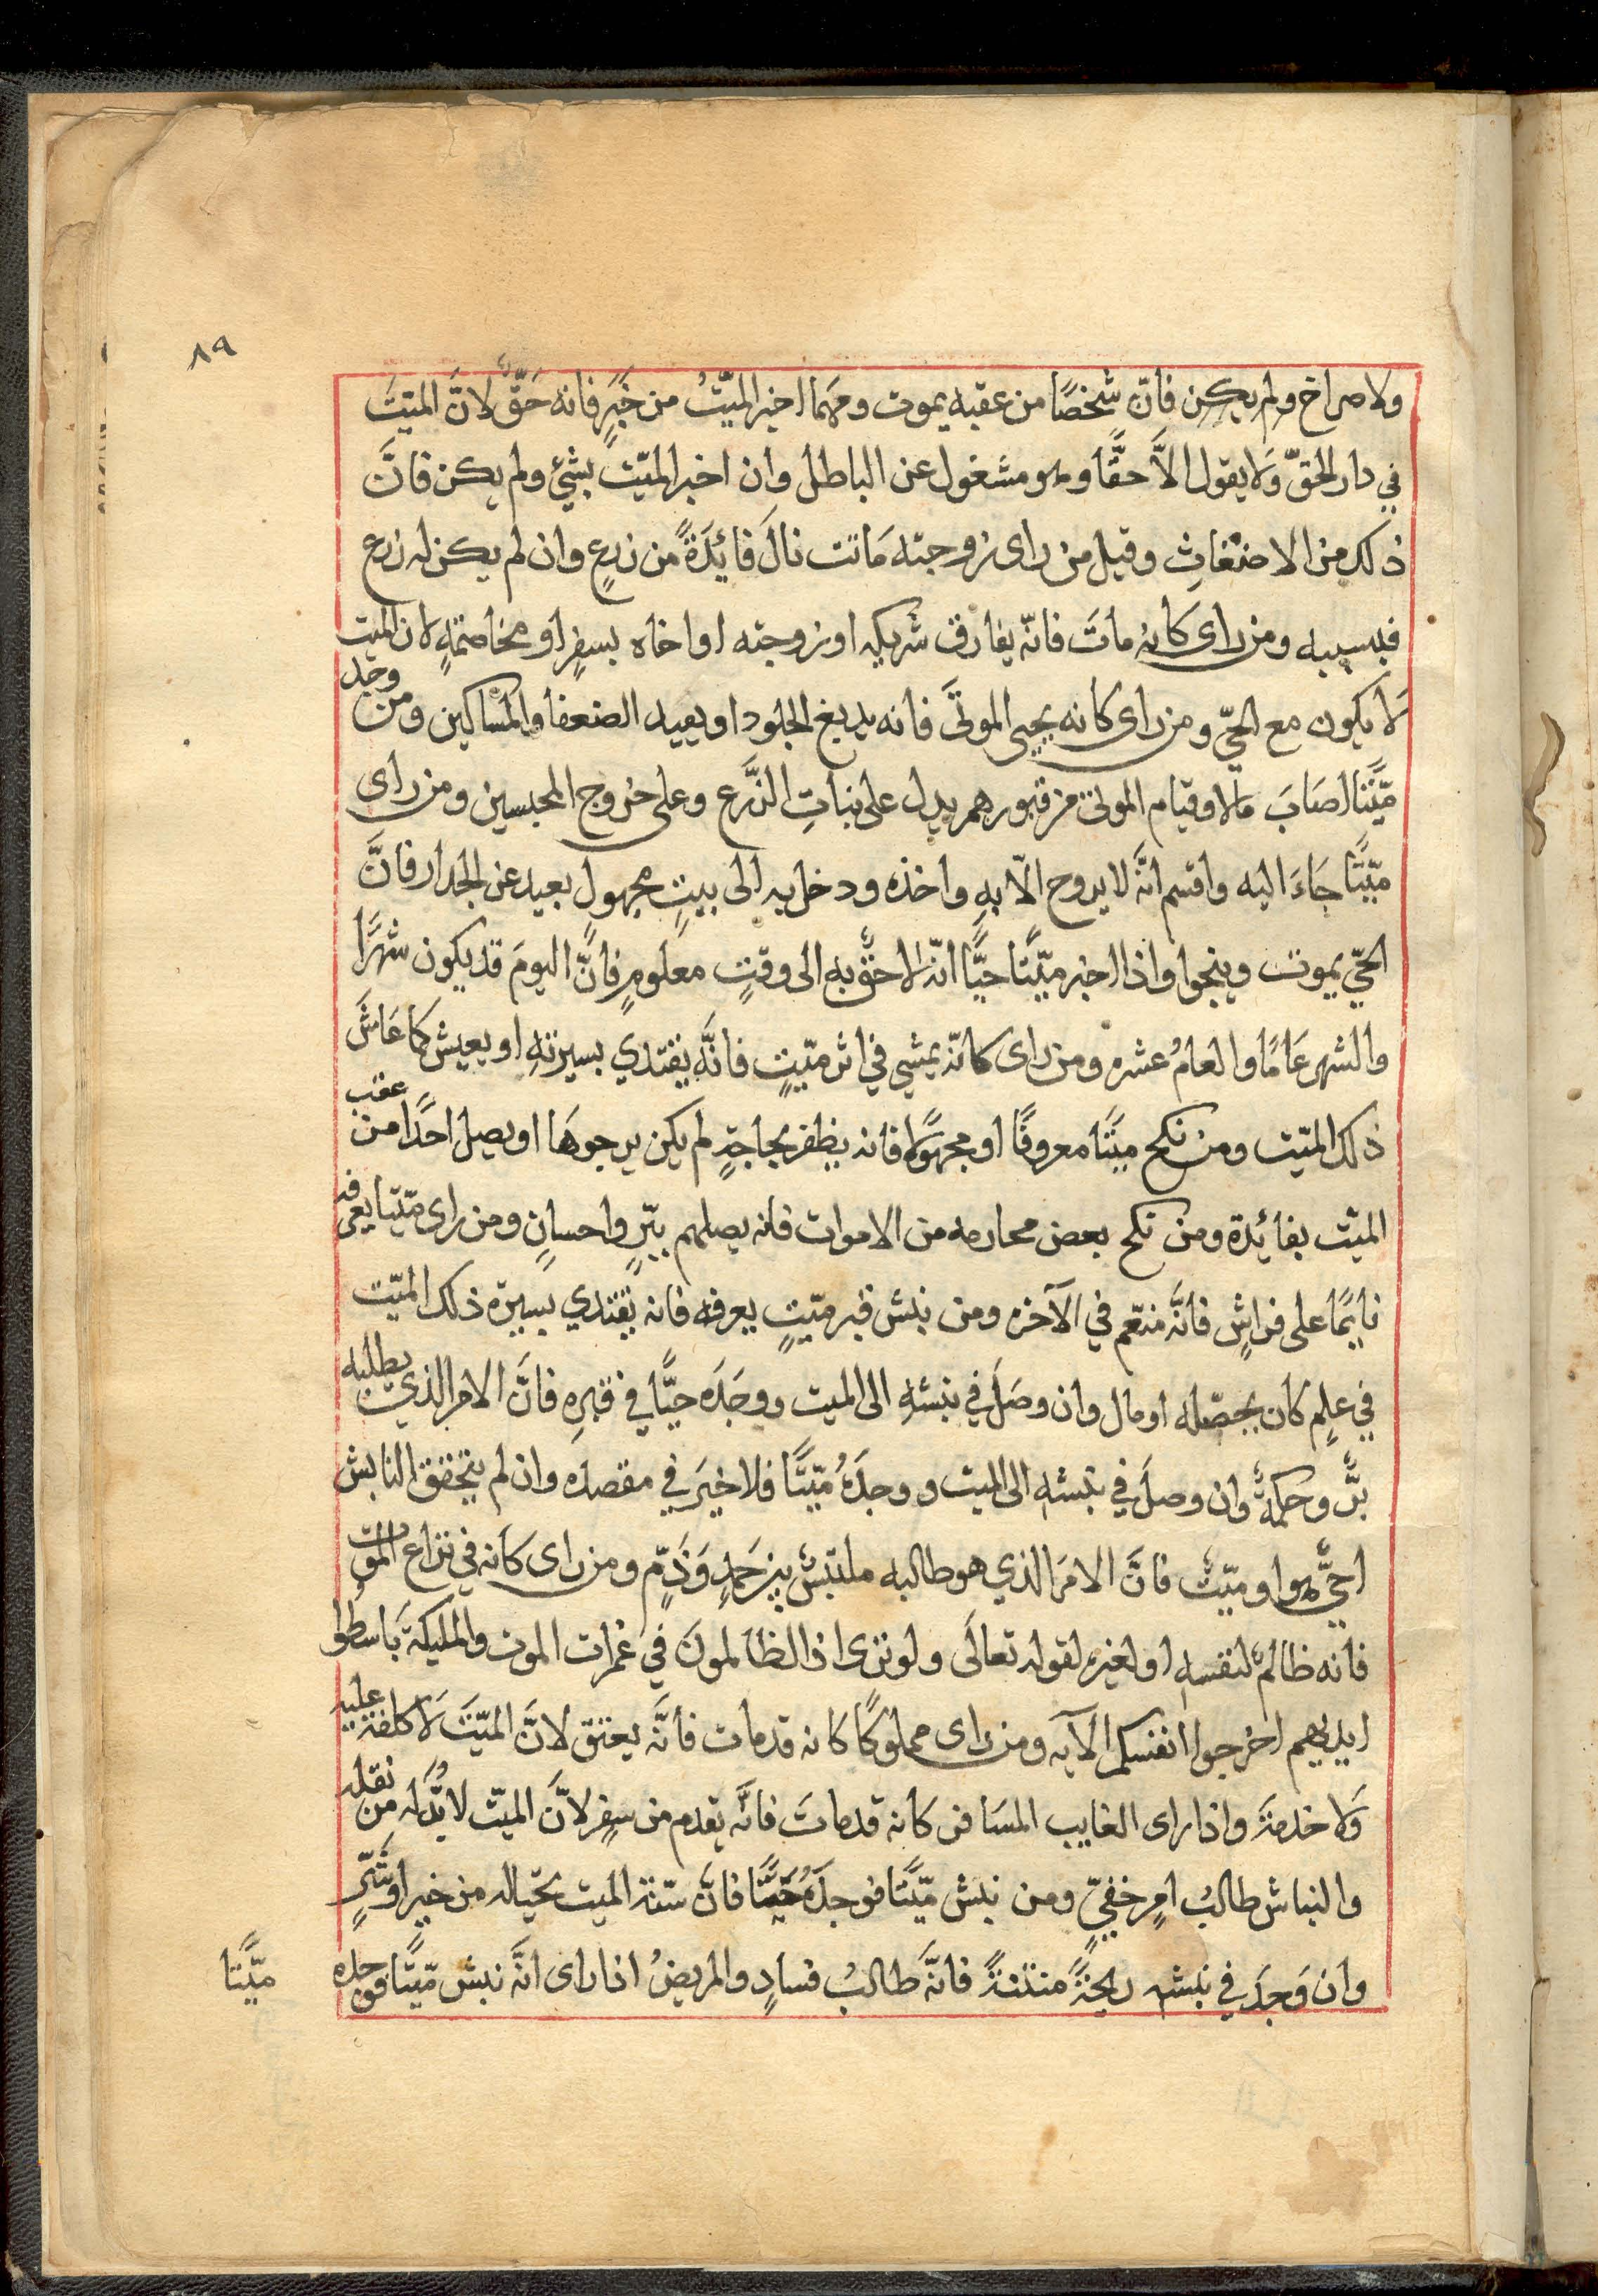 ٨٩
ولا صراخ ولم يكن فانّ شخصًا من عقبه يموت ومهما اخبر الميّتُ من خَبَرٍ فانه حَقٌّ لانَّ الميّتَ
في دار الحقّ وَلا يقول الاَّ حقَّا وهو مشغول عن الباطل وان اخبر الميّت بشئٍ ولم يكن فانَّ
ذلك من الاضغاثِ وقيل من راى زوجته مَاتت نالَ فَائِدَةً من زرعٍ وان لم يكن له زرع
فبسببه ومن راى كَانهُ ماتَ فانّه يفارق شريكه او زوجته او اخاه بسفرٍ او مخاصمةٍ لان الميت
لاَ يكون مع الحيّ ومن راى كانه يحيى الموتَى فانه يدبغ الجلود او يعيد الضعفا والمسَاكين ومن وجد
ميَّتًا اصَابَ مالا وقيام الموتى من قبورهم يدل على نباتِ الزَّرع وعلى خروج المحبسين ومن راى
ميّتًا جَاءَ اليه واقسم انَّه لا يروح الاّ بهِ واخذه ودخل به الى بيتٍ مجهولٍ بعيد عن الجدار فانَّ
الحيّ يموت وينجوا واذا اخبر ميّتًا حيًّا انّه لاحقٌ به الى وقتٍ معلومٍ فانَّ اليومَ قد يكون شهرًا
والشهر عَامًا والعامُ عشره ومن راى كانّه يمشي في اثر ميّتٍ فانَّه يقتدي بسيرتهِ او يعيش كما عَاشَ
ذلك الميّت ومن نكح ميّتًا معروفًا او مجهولا فانه يظفر بحاجةٍ لم يكن يرجوهَا او يصل احدًا من عقب
الميّت بفائِدة ومن نكح بعض محارمه من الاموات فانه يصلهم ببّرٍ واحسانٍ ومن راى ميّتا يعرفه
نايمًا على فراشٍ فانَّه منعّم في الآخره ومن نبش قبر ميّتٍ يعرفه فانه يقتدي بسيرة ذلك الميّت
في علمٍ كان يحصّله او مال وان وصَلَ في نبشهِ الى الميت ووجَدَه حيًّا في قبرهِ فانَّ الامر الذي يطلبه
برٌّ وحكمةٌ وان وصلَ في نبشه الى الميت ووجدَهُ ميّتًا فلا خيَر في مقصدَه وان لم يتحقق النابش
احيٌّ هوا وميّتٌ فانَّ الامرَ الذي هو طالبه ملتبسٌ بين حَمدٍ وَذَمٍّ ومن راى كانه في نزاع الموت
فانه ظالمٌ لنفسهِ او لغيره لقوله تعالَى ولو ترى اذ الظالمونَ في غمرات الموت والمليكة بَاسطوا
ايديهم اخرجوا انفسكم الآيه ومن راى مملوكًا كانه قد مات فانَّه يعتق لانَّ الميّتَ لاَ كلفة عليه
وَلا خدمةَ واذا راى الغايب المسَافر كانه قد ماتَ فانَّه يقدم من سفرٍ لانَّ الميّت لا بُدَّ له من نقله
والنباش طالبُ امرٍ خفيٍّ ومن نبش ميّتًا فوجدَهُ حيًّا فانَّ سنّة الميت بحياله من خيرٍ او شّرٍ
وان وَجَدَ في نبشه ريحةً منتنةً فانَّه طالبُ فسادٍ والمريضُ اذا راى انَّه نبش ميّتًا فوجده
ميّتًا